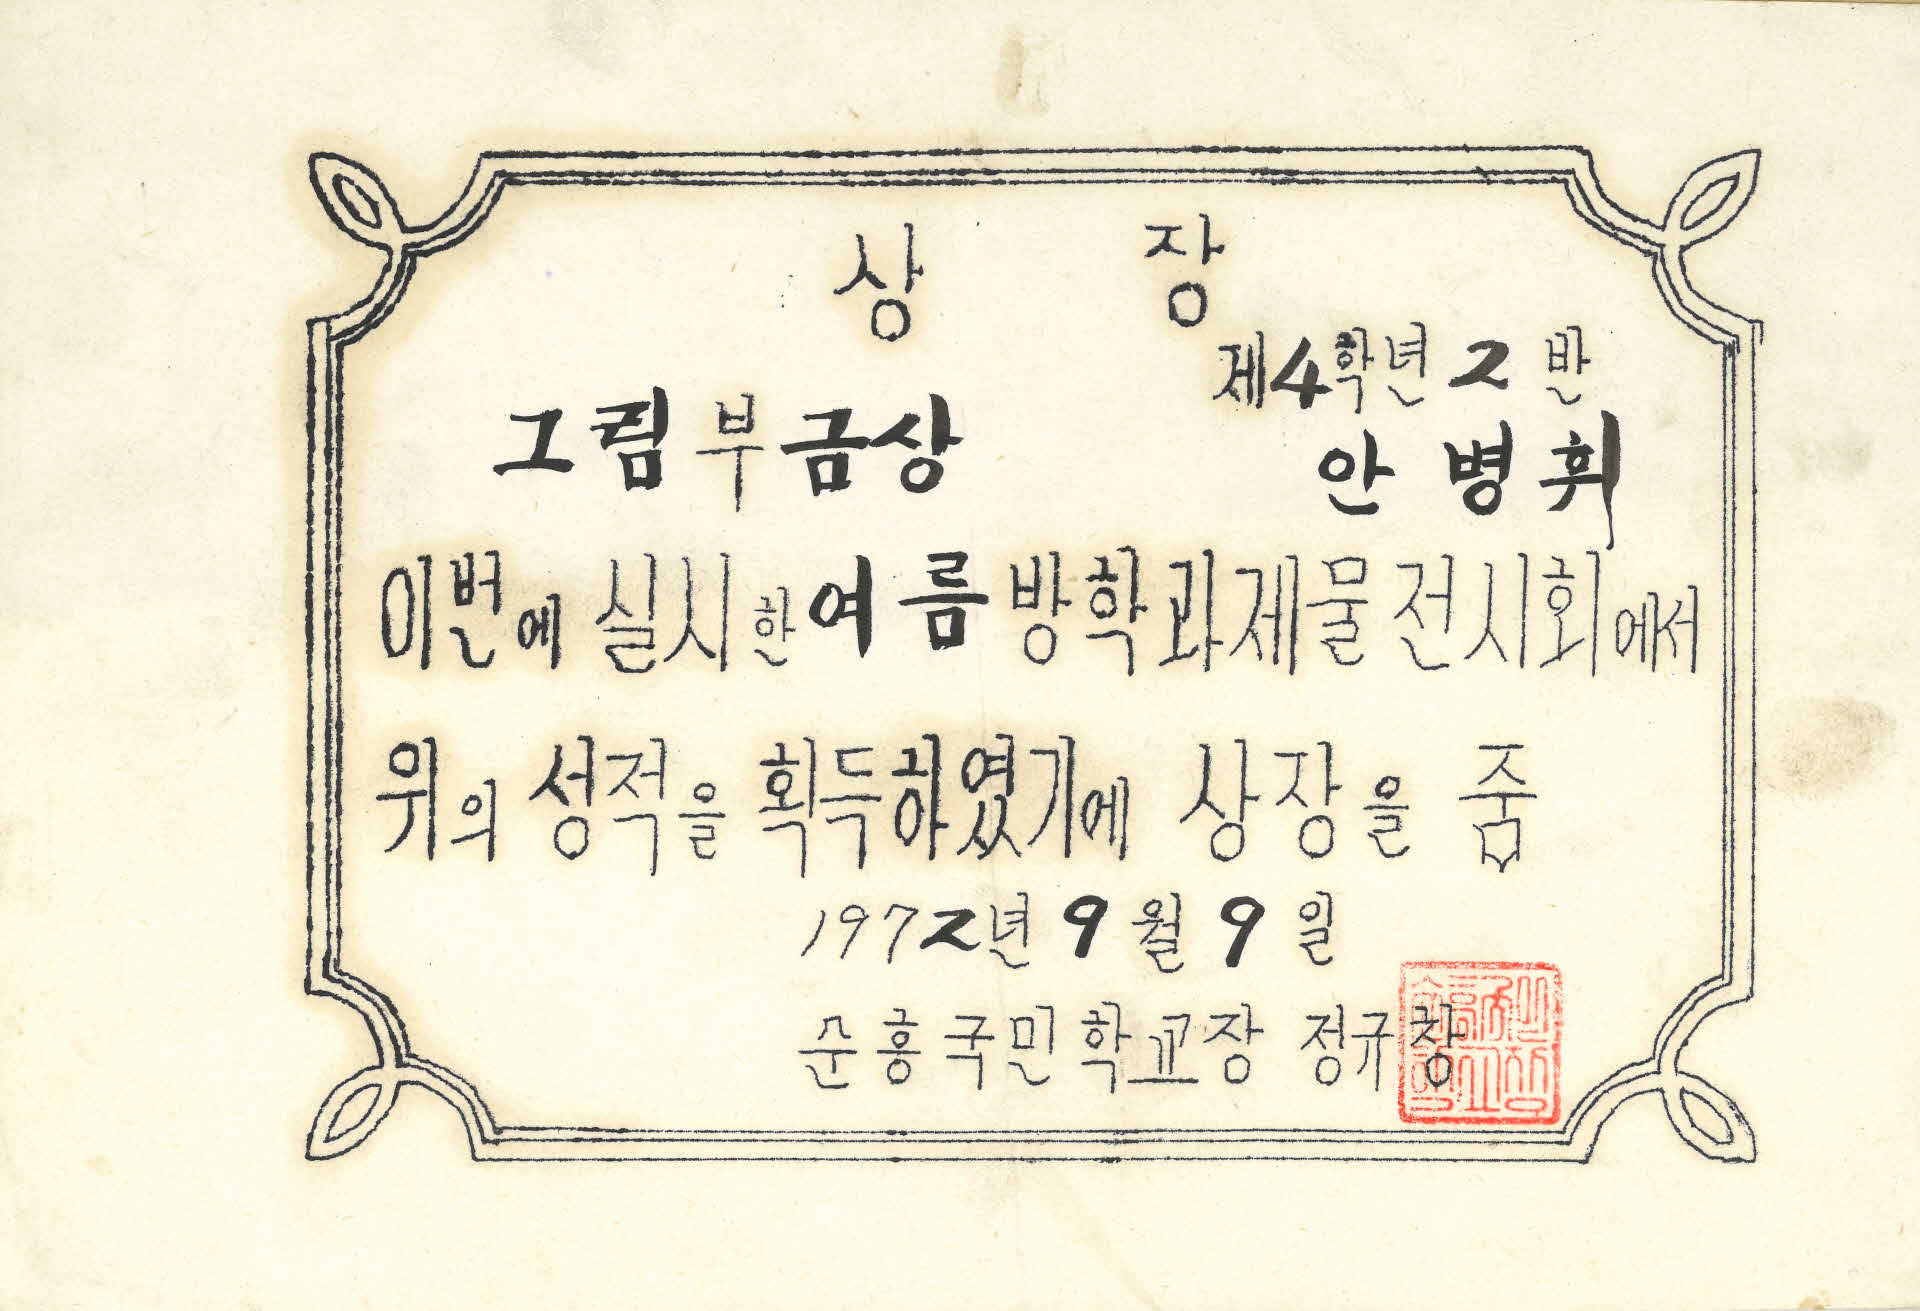 상 장
제4학년 2 반
그림 부 금상
안 병 휘
이번에 실시한 여름 방학과제물전시회에서
위의 성적을 획득하였기에 상장을 줌
1972년 9월 9일
순흥국민학교장 정규창